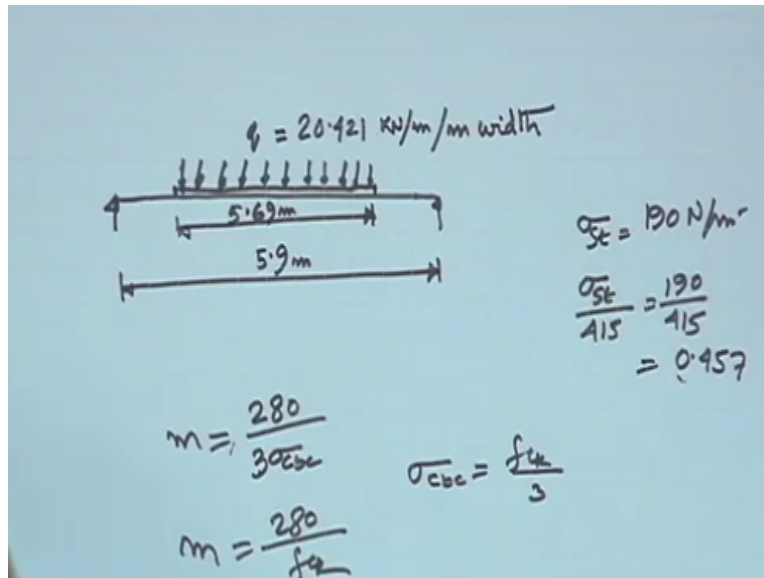 q = 20.421 KN/m/m width
5.69m
5.9m
σst = 190 N/m
σst/415 = 190/415
= 0.457
m = 280/3σcbc
σcbc = fck/3
m = 280/fck